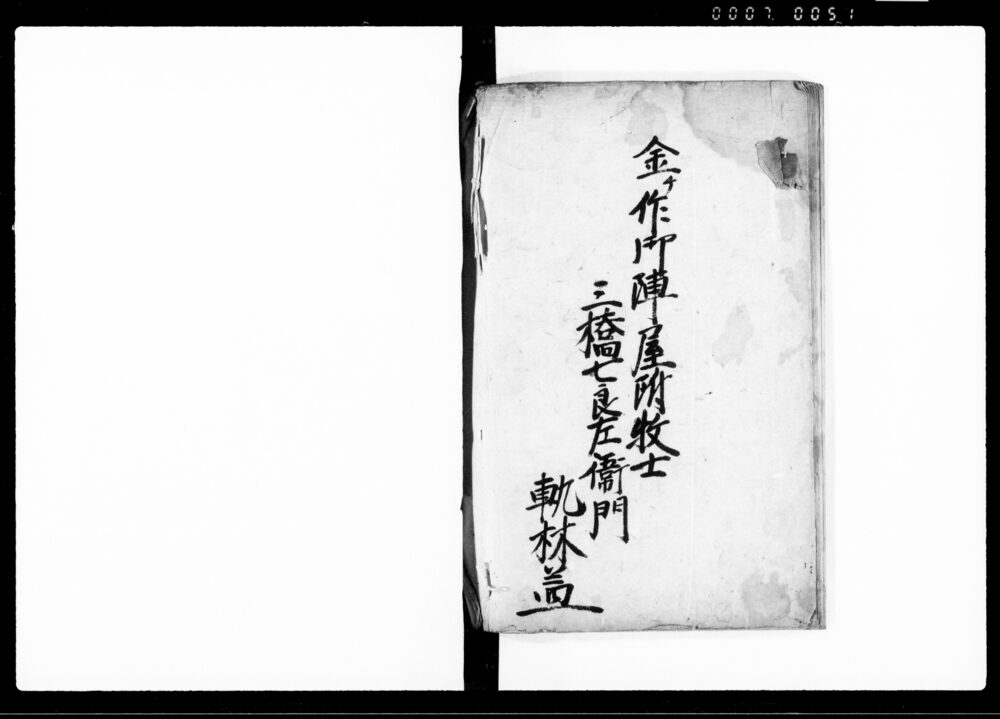 0007 0051
金ヶ作御陣屋附牧士
三橋七良左衛門
軌林